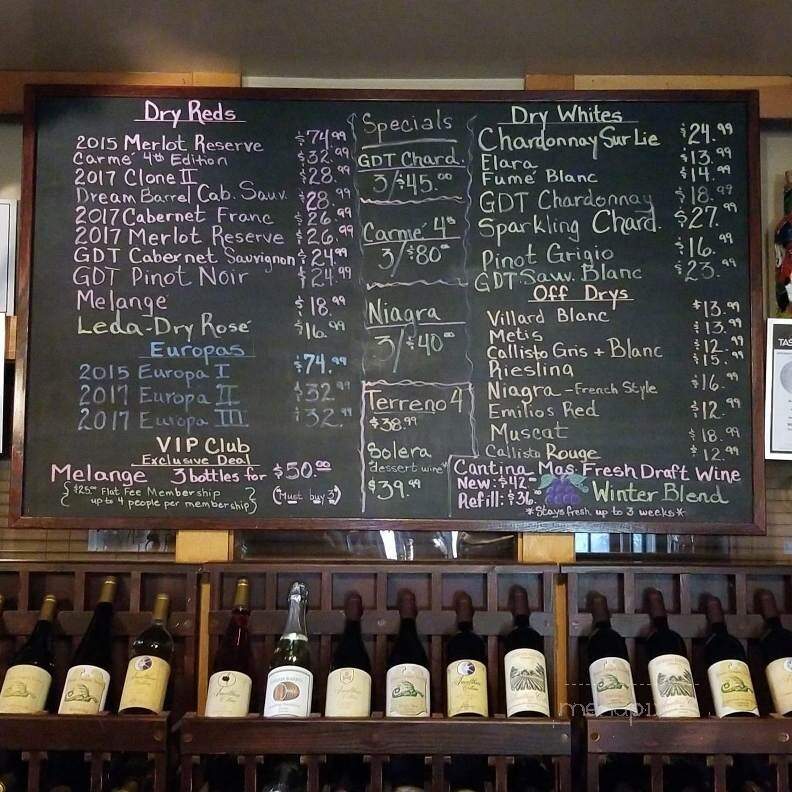 Dry Reds
2015 Merlot Reserve $74.99
Carmé 4th Edition $32.99
2017 Clone II $28.99
Dream Barrel Cab. Sauv. $28.99
2017 Cabernet Franc $26.99
2017 Merlot Reserve $26.99
GDT Cabernet Sauvignon $24.99
GDT Pinot Noir $24.99
Melange $18.99
Leda-Dry Rosé $16.99
Europas
2015 Europa I $74.99
2017 Europa II $32.99
2017 Europa III $32.99
VIP Club
Exclusive Deal
Melange 3 bottles for $50.00
{ $25.00 Flat Fee Membership (Must buy 3)
up to 4 people per membership }
Specials
GDT Chard.
3/$45.00
Carmé 4th
3/$80.00
Niagra
3/$40.00
Terreno 4
$38.99
Solera
"dessert wine"
$39.99
Dry Whites
Chardonnay Sur Lie $24.99
Elara $13.99
Fumé Blanc $14.99
GDT Chardonnay $18.99
Sparkling Chard. $27.99
Pinot Grigio $16.99
GDT Sauv. Blanc $23.99
Off Drys
Villard Blanc $13.99
Metis $13.99
Callisto Gris + Blanc $12.99
Riesling $15.99
Niagra - French Style $16.99
Emilios Red $12.99
Muscat $18.99
Callisto Rouge $12.99
Cantina Mas Fresh Draft Wine
New: $42.00
Refill: $36.00 Winter Blend
*Stays fresh up to 3 weeks*
TAS
menupix